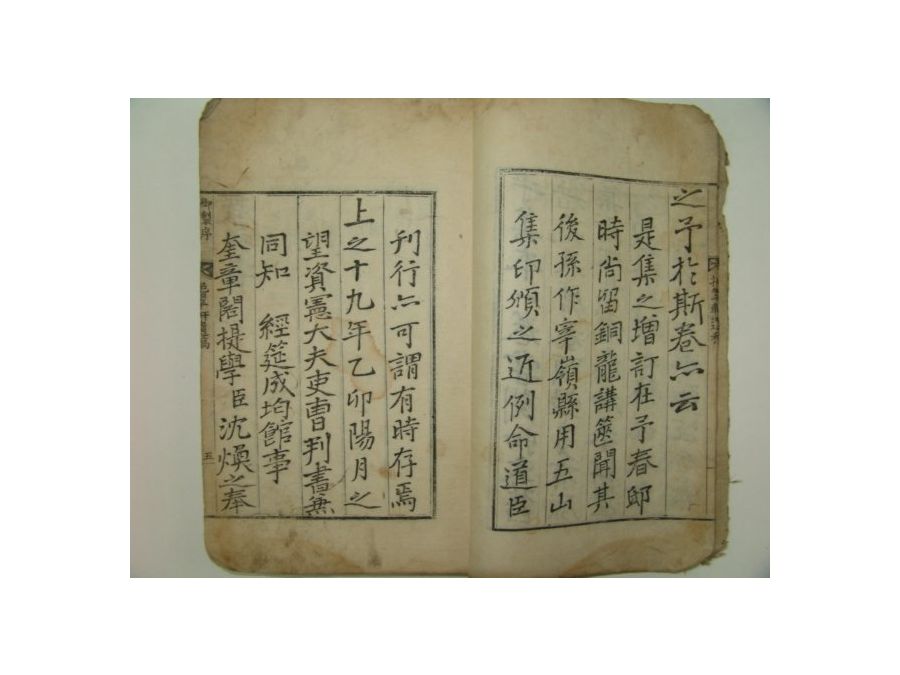 之予於斯卷亦云
是集之增訂在予春邸
時尚留銅龍講篋聞其
後孫作宰嶺縣用五山
集印頒之近例命道臣
刊行亦可謂有時存焉
上之十九年乙卯陽月之
望資憲大夫吏曹判書兼
同知　經筵成均館事
奎章閣提學臣沈煥之奉
御製序
五